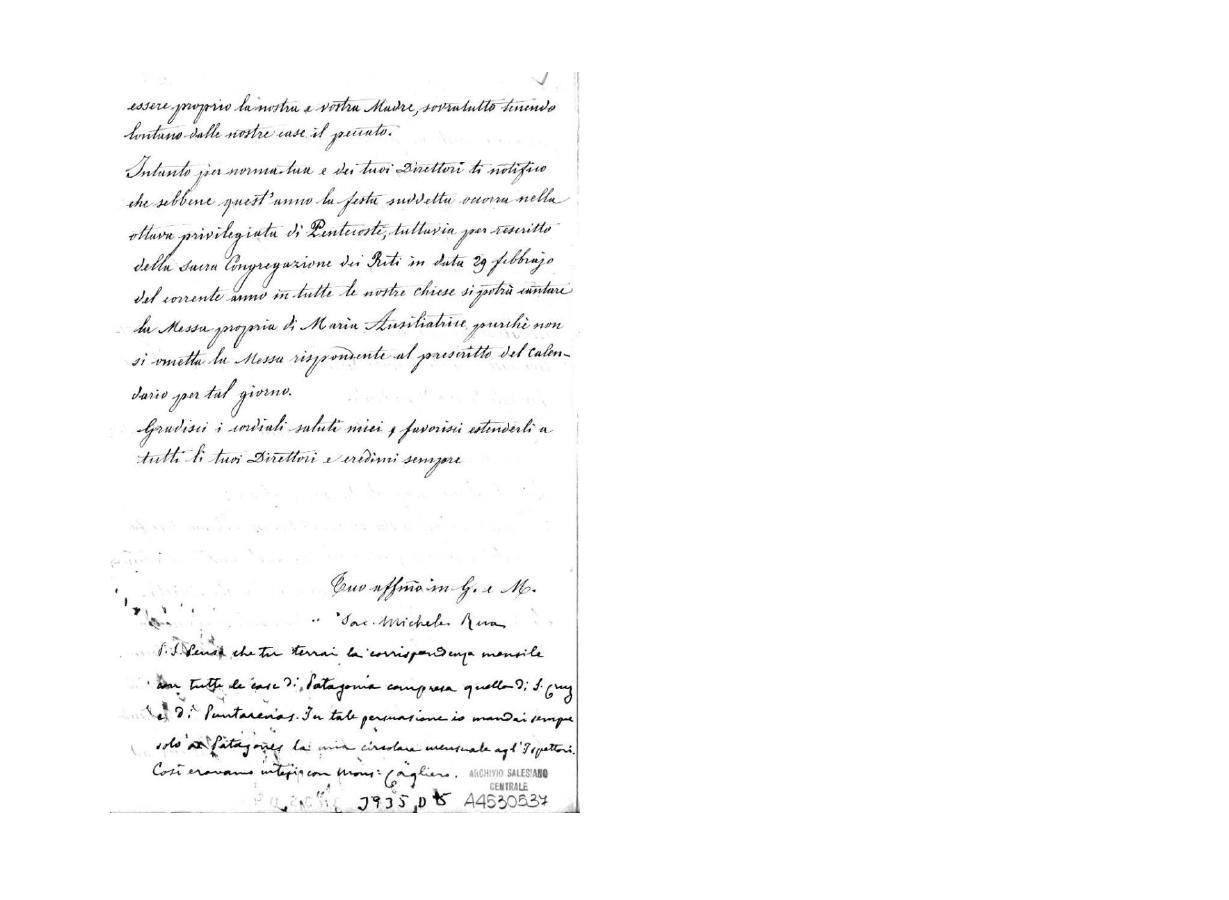 essere proprio la nostra e vostra Madre, sovratutto tenendo
lontano dalle nostre case il peccato.
Intanto per norma tua e dei tuoi Direttori ti notifico
che sebbene quest'anno la festa suddetta occorra nella
ottava privilegiata di Pentecoste, tuttavia per rescritto
della Sacra Congregazione dei Riti in data 29 febbrajo
del corrente anno in tutte le nostre chiese si potrà cantare
la Messa propria di Maria Ausiliatrice, purchè non
si ometta la Messa rispondente al prescritto del calen-
dario per tal giorno.
Gradisci i cordiali saluti miei, favorisci estenderli a
tutti li tuoi Direttori e credimi sempre
Tuo affmo in G. e M.
Sac. Michele Rua
P.S. Penso che tu terrai la corrispondenza mensile
con tutte le case di Patagonia compresa quella di S. Cruz
e di Puntarenas. In tale persuasione io mandai sempre
solo a Patagones la mia circolare mensuale agl'Ispettori.
Così eravamo intesi con Mons: Cagliero.
ARCHIVIO SALESIANO
CENTRALE
3935 D 5 A4530537